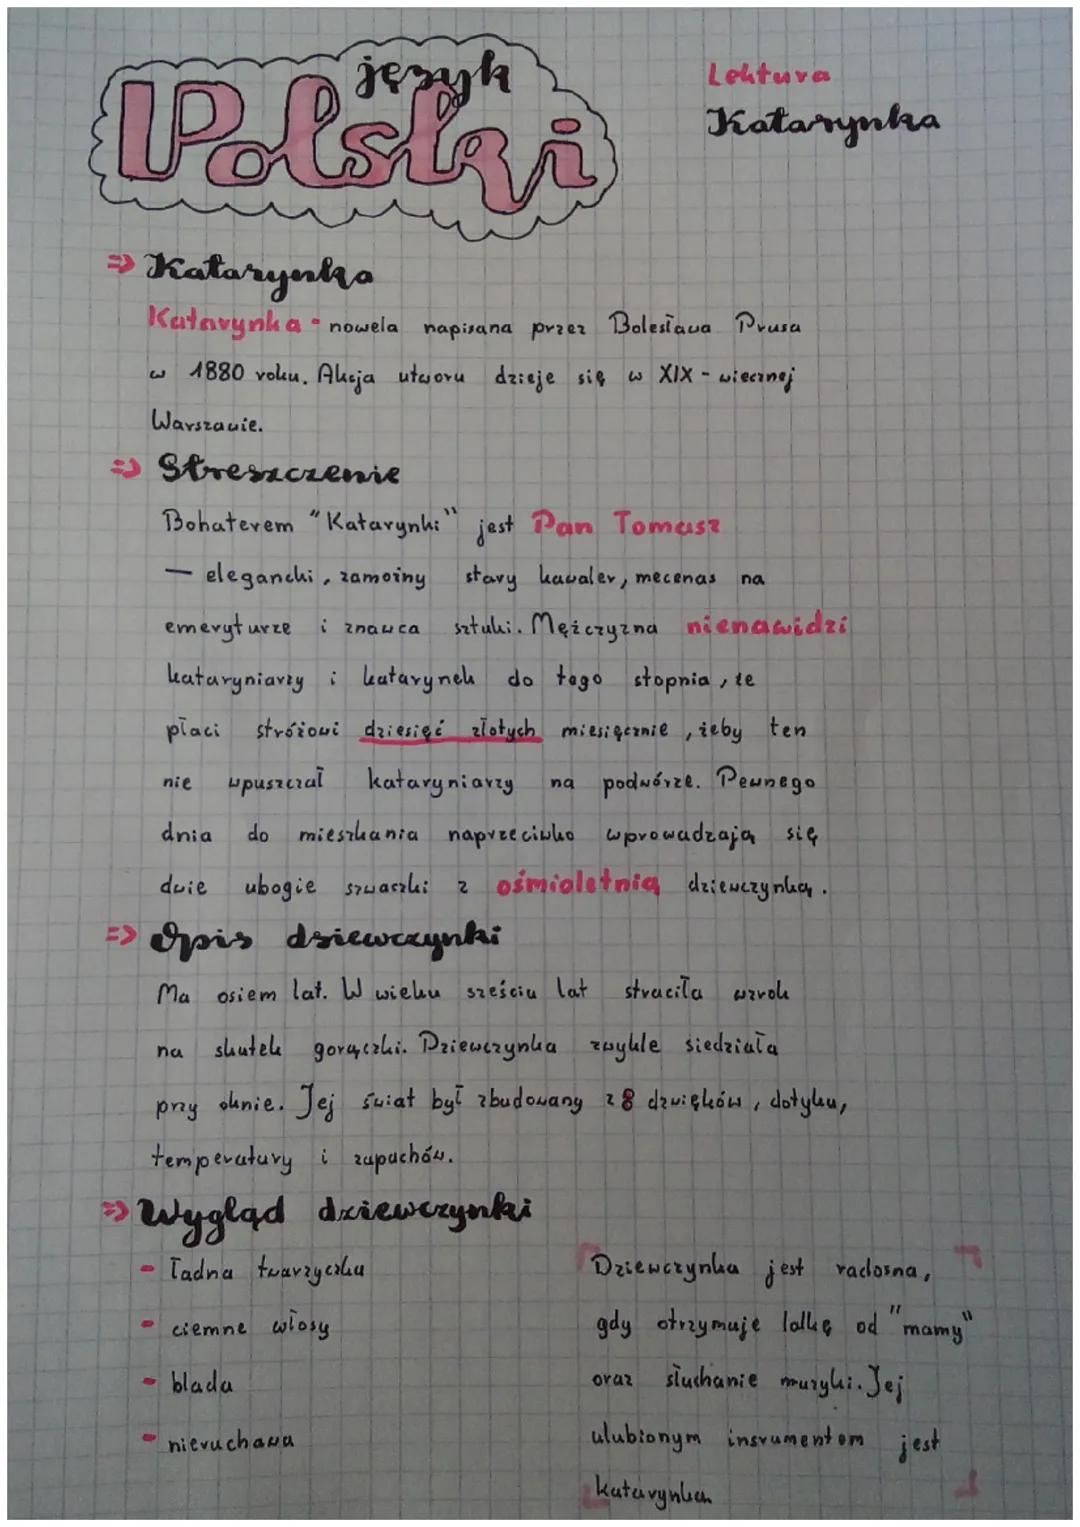 język
Polski
Lektura
Katarynka
=> Katarynka
Katarynka - nowela napisana przez Bolesława Prusa
w 1880 roku. Akcja utworu dzieje się w XIX - wiecznej
Warszawie.
=> Streszczenie
Bohaterem "Katarynki" jest Pan Tomasz
— elegancki, zamożny stary kawaler, mecenas na
emeryturze i znawca sztuki. Mężczyzna nienawidzi
kataryniarzy i katarynek do tego stopnia, że
płaci stróżowi dziesięć złotych miesięcznie, żeby ten
nie wpuszczał kataryniarzy na podwórze. Pewnego
dnia do mieszkania naprzeciwko wprowadzają się
dwie ubogie szwaczki z ośmioletnią dziewczynką.
=> Opis dziewczynki
Ma osiem lat. W wieku sześciu lat straciła wzrok
na skutek gorączki. Dziewczynka zwykle siedziała
przy oknie. Jej świat był zbudowany z dzwięków, dotyku,
temperatury i zapachów.
=> Wygląd dziewczynki
- ładna twarzyczka
- ciemne włosy
- blada
- nieruchawa
Dziewczynka jest radosna,
gdy otrzymuje lalkę od "mamy"
oraz słuchanie muzyki. Jej
ulubionym insrumentem jest
katarynka